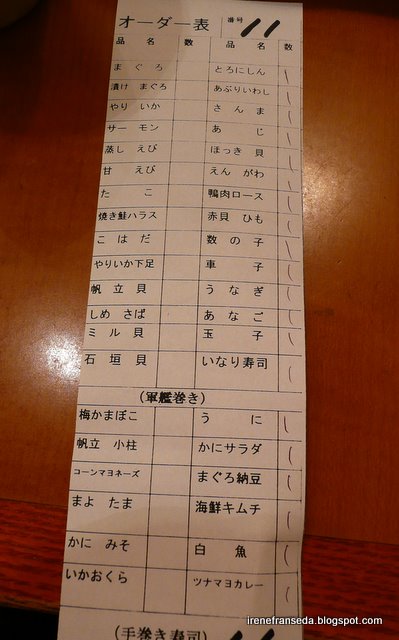 オーダー表 番号 11
品 名 数 品 名 数
まぐろ とろにしん \
漬け まぐろ あぶりいわし \
やり いか さんま \
サーモン あじ \
蒸し えび ほっき 貝 \
甘 えび えん がわ \
たこ 鴨肉ロース \
焼き鮭ハラス 赤貝 ひも \
こはだ 数の子 \
やりいか下足 車子 (
帆立貝 うなぎ (
しめ さば あなご (
ミル貝 玉子 (
石垣貝 いなり寿司 (
(軍艦巻き)
梅かまぼこ うに (
帆立 小柱 かにサラダ (
コーンマヨネーズ まぐろ納豆 (
まよ たま 海鮮キムチ (
かに みそ 白魚 (
いかおくら ツナマヨカレー (
(手巻き寿司)
irenefranseda.blogspot.com